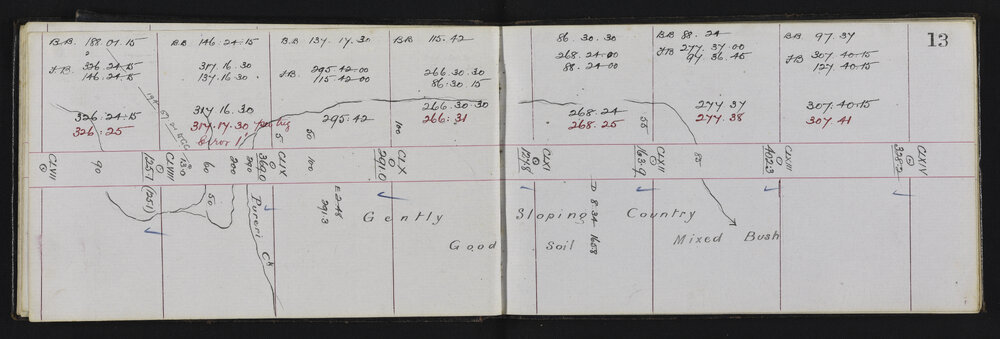 13
B.B. 188.07.15
326.24.15
146.24.15
326.24.15
326.25
B.B 146:24:15
317.16.30
137.16.30
317 16.30
317.17.30
Error 1'
B.B 137.17.30
F.B. 295.42.00
115.42.00
295.42
B.B 115.42
266.30.30
86.30.15
266.30.30
266:31
86.30.30
268.24.00
88.24.00
268.24
268.25
B.B 88.24
F.B 277.37.00
97.36.45
277 37
277.38
B.B 97.37
F.B 307.40.15
127.40.15
307.40.15
307 41
CLVII
90
1257
CLVIII
130
60
200
290
3690
CLIX
55
100
50
2910
CLX
100
1278
CLXI
1639
CLXII
55
85
4023
CLXIII
3382
CLXIV
(1251)
50
Pureri Ck
E 2.48
2913
D 8.34 1658
Gently Sloping Country
Good Soil Mixed Bush